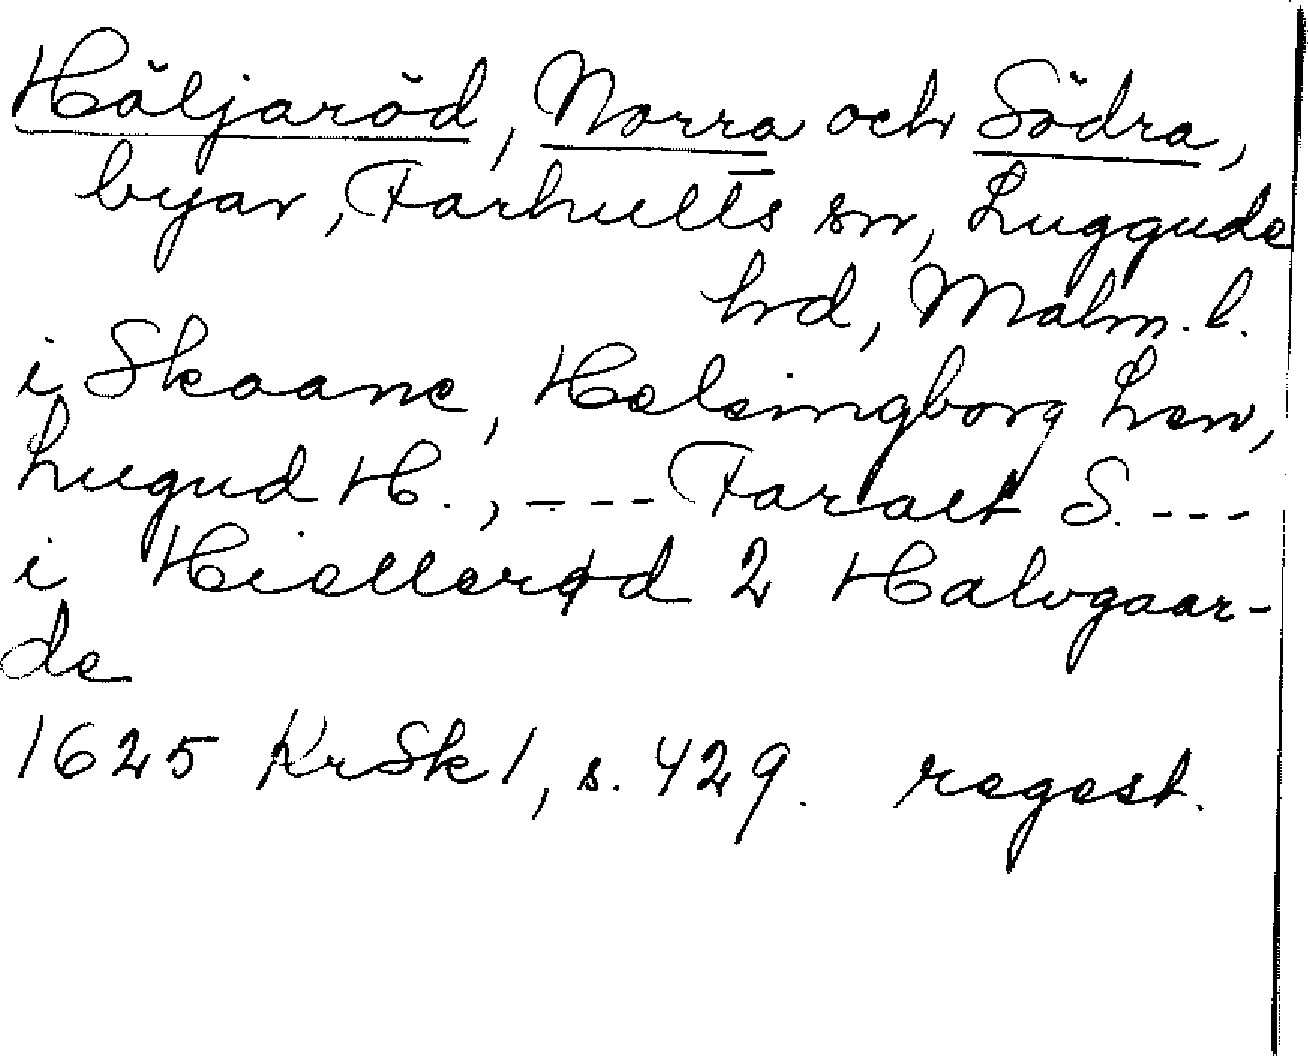 Häljaröd, Norra och Södra,
byar, Farhults sn, Luggude
hrd, Malm. l.
i Skaane, Helsingborg Len,
Lugud H., --- Faralt S. ---
i Hiellerød 2 Halvgaar-
de
1625 KrSk1, s. 429. regest.